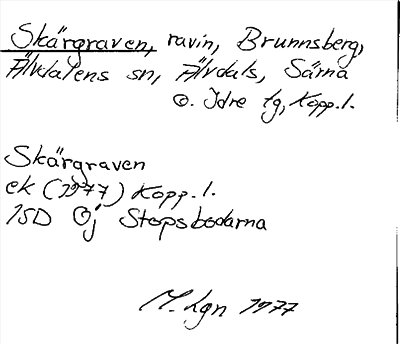 Skärgraven, ravin, Brunnsberg,
Älvdalens sn, Älvdals, Särna
o. Idre tg, Kopp. l.
Skärgraven
ek (1977) Kopp. l.
15D Öj Stopsbodarna
M. Lgn 1977